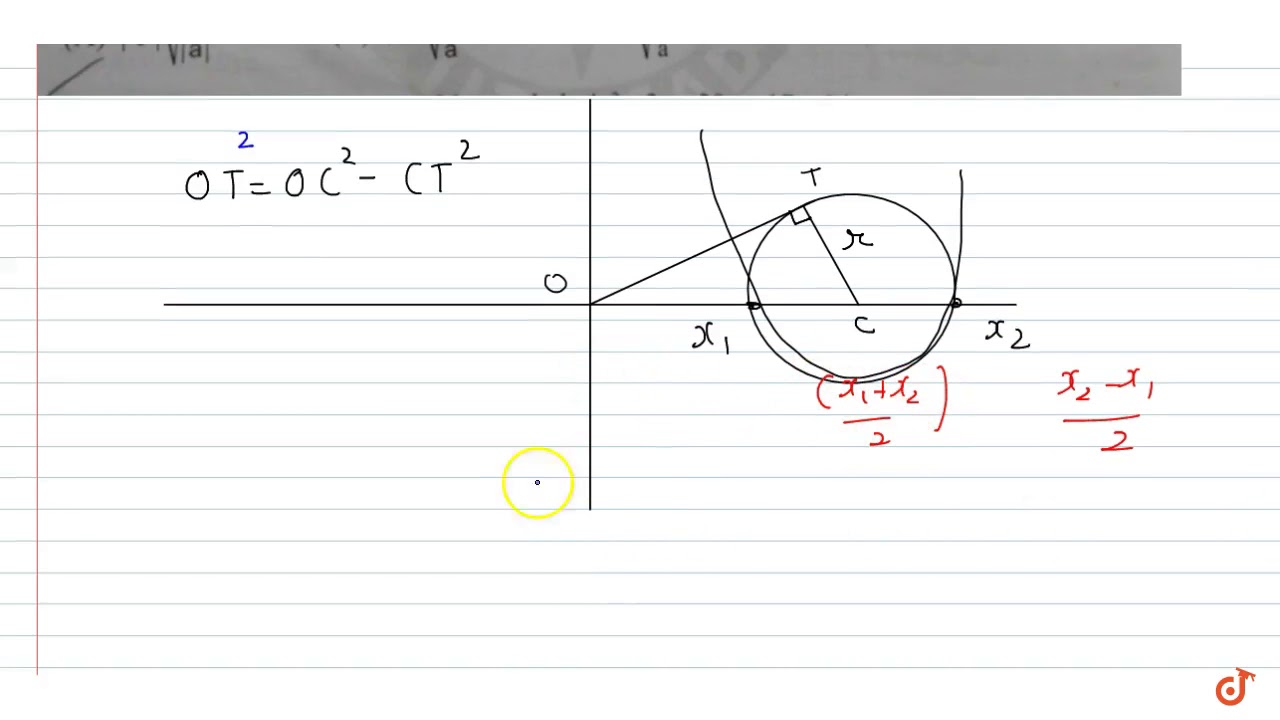 √|a| √a √a
OT² = OC² - CT²
T
r
O
C
x₁ x₂
(x₁+x₂)/2
x₂-x₁/2